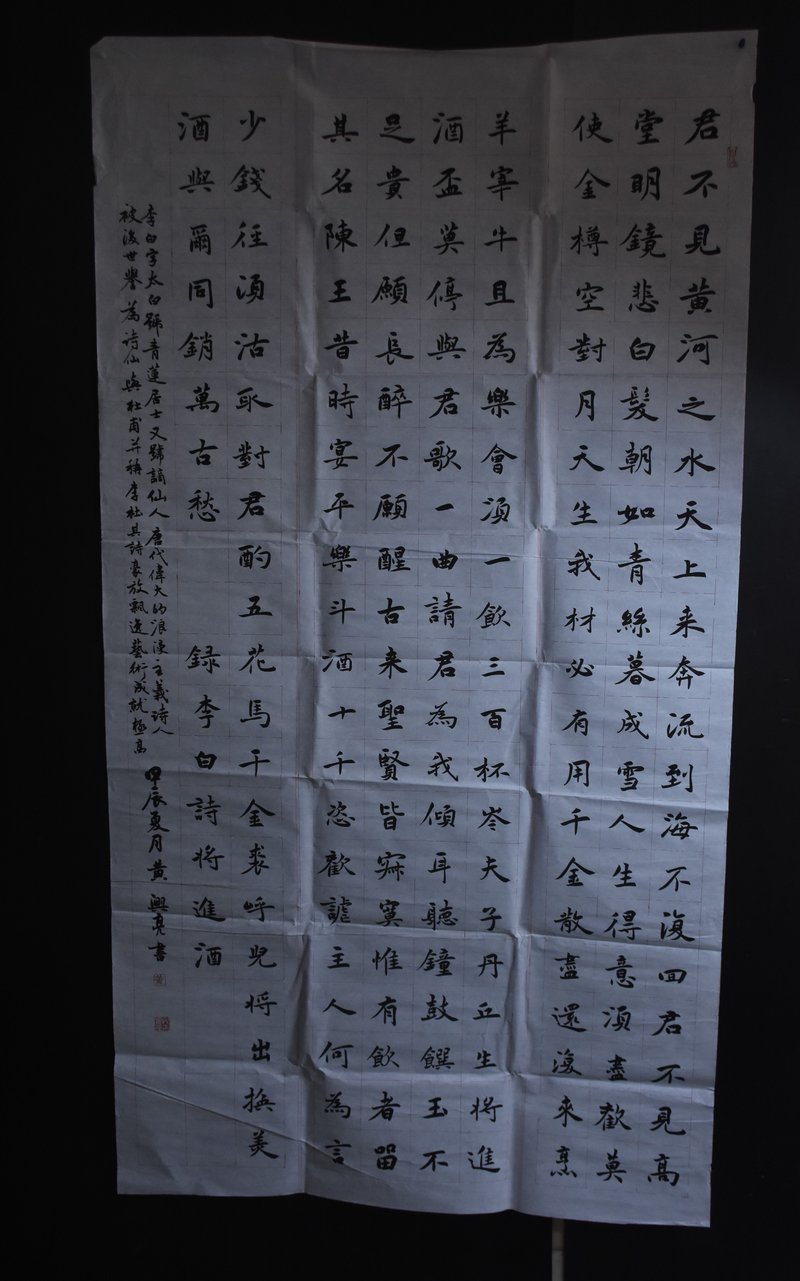 君不見黃河之水天上来奔流到海不復回君不見高
堂明鏡悲白髮朝如青絲暮成雪人生得意湏盡歡莫
使金樽空對月天生我材必有用千金散盡還復来烹
羊宰牛且為樂會湏一飲三百杯岑夫子丹丘生将進
酒盃莫停與君歌一曲請君為我傾耳聽鐘鼓饌玉不
足貴但願長醉不願醒古来聖賢皆寂寞惟有飲者留
其名陳王昔時宴平樂斗酒十千恣歡謔主人何為言
少錢径湏沽取對君酌五花馬千金裘呼兒将出換美
酒與爾同銷萬古愁 録李白詩将進酒
李白字太白號青蓮居士又號謫仙人唐代偉大的浪漫主義詩人
被後世譽為詩仙與杜甫并稱李杜其詩豪放飄逸藝術成就極高
甲辰夏月黄興亮書